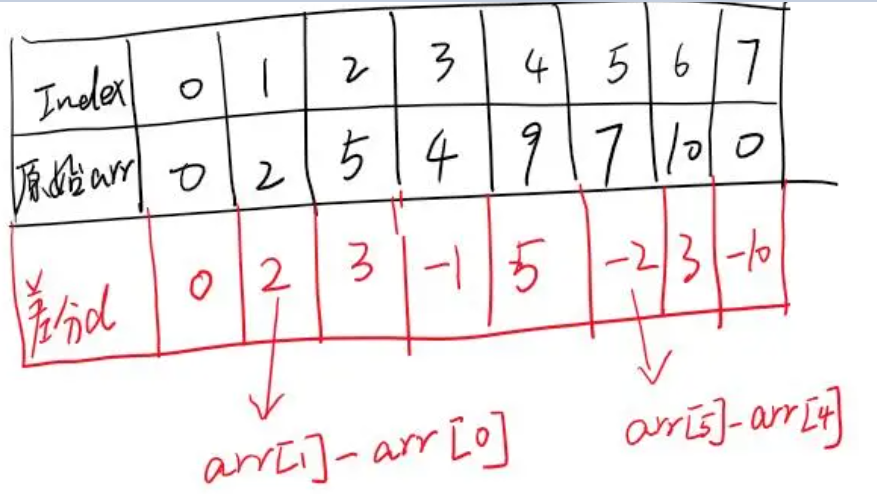 Index 0 1 2 3 4 5 6 7
原始arr 0 2 5 4 9 7 10 0
差分d 0 2 3 -1 5 -2 3 -10
arr[1]-arr[0] arr[5]-arr[4]